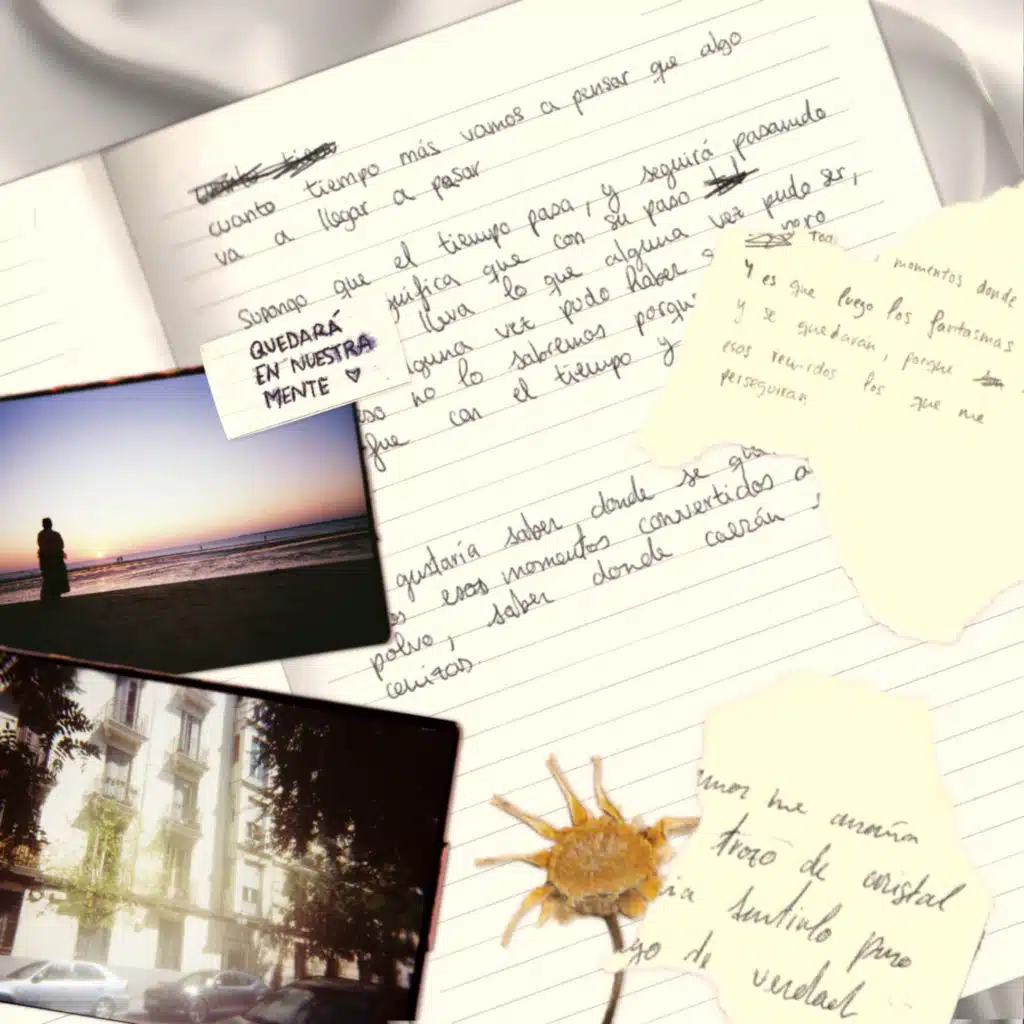 cuanto tiempo más vamos a pensar que algo
va a llegar a pasar
Supongo que el tiempo pasa, y seguirá pasando
nifica que con su paso
lleva lo que alguna vez pudo ser,
lguna vez pudo haber
no lo sabremos porqu
fue con el tiempo y
QUEDARÁ
EN NUESTRA
MENTE ♡
gustaría saber donde se
os esos momentos convertidos a
polvo, saber donde caerán
cenizas
momentos donde
Y es que luego los fantasmas
y se quedarán, porque
esos recuerdos los que me
perseguiran
me araña
trozo de cristal
sentirlo puro
de verdad